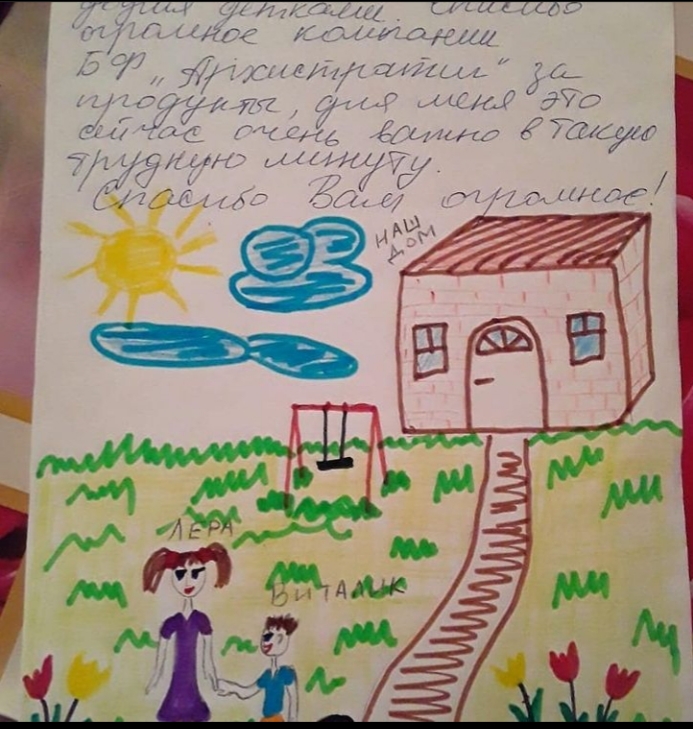 другими детками. Спасибо
огромное компании
БФ „Архистратиг" за
продукты, для меня это
сейчас очень важно в такую
трудную минуту.
Спасибо Вам огромное!
НАШ
ДОМ
ЛЕРА
ВИТАЛИК